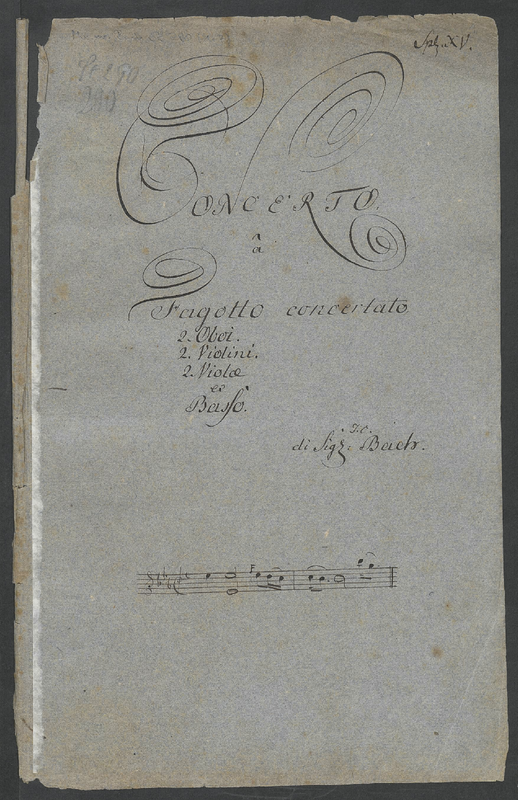 CONCERTO.
â
Fagotto concertato
2. Oboi.
2. Violini.
2. Violæ
Basso.
J.C.
di Sigr: Bach.